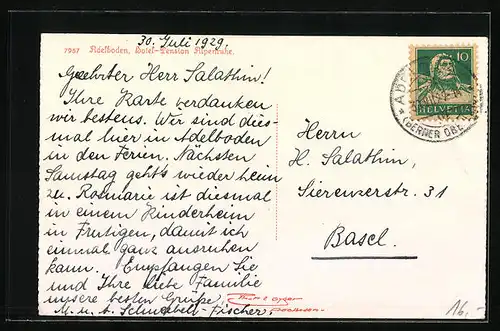 30. Juli 1929.
7957 Adelboden, Hotel-Pension Alpenruhe.
Geehrter Herr Salathin!
Ihre Karte verdanken
wir bestens. Wir sind dies-
mal hier in Adelboden
in den Ferien. Nächsten
Samstag geht's wieder heim
zu. Rosmarie ist diesmal
in einem Kinderheim
in Frutigen, damit ich
einmal ganz ausruhen
kann. Empfangen Sie
und Ihre liebe Familie
unsere besten Grüße.
M. u. A. Fischer.
10
HELVETIA
(BERNER OBE
Herrn
H. Salathin,
Sierenzerstr. 31
Basel.
16.-